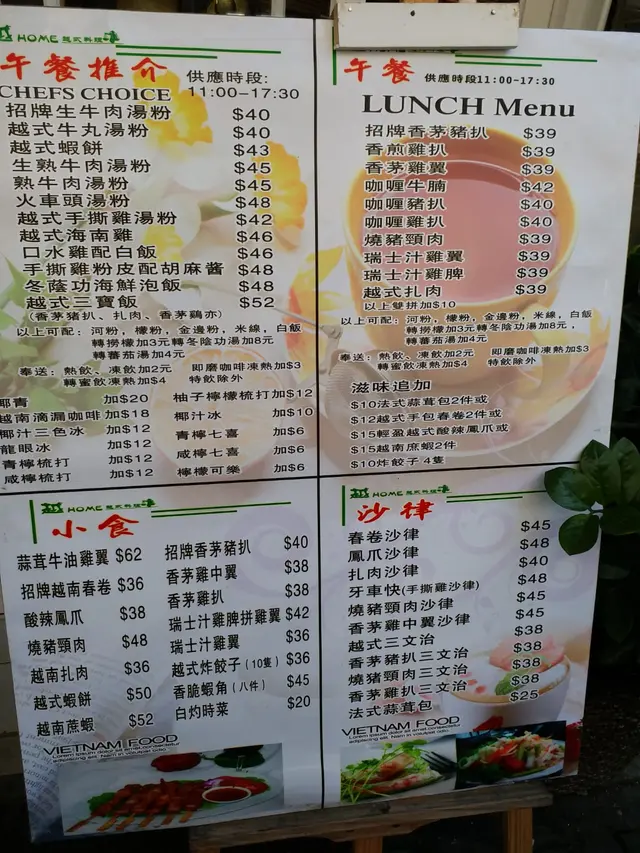 越 HOME 越式料理
午餐推介 供應時段:
CHEFS CHOICE 11:00-17:30
招牌生牛肉湯粉 $40
越式牛丸湯粉 $40
越式蝦餅 $43
生熟牛肉湯粉 $45
熟牛肉湯粉 $45
火車頭湯粉 $48
越式手撕雞湯粉 $42
越式海南雞 $46
口水雞配白飯 $46
手撕雞粉皮配胡麻醬 $48
冬蔭功海鮮泡飯 $48
越式三寶飯 $52
(香茅豬扒、扎肉、香茅鷄亦)
以上可配: 河粉, 檬粉, 金邊粉, 米線, 白飯
轉撈檬加3元轉冬陰功湯加8元
轉蕃茄湯加4元
奉送: 熱飲、凍飲加2元 即磨咖啡凍熱加$3
轉蜜飲凍熱加$4 特飲除外
椰青 加$20
越南滴漏咖啡 加$18
椰汁三色冰 加$12
龍眼冰 加$12
青檸梳打 加$12
咸檸梳打 加$12
柚子檸檬梳打 加$12
椰汁冰 加$10
青檸七喜 加$6
咸檸七喜 加$6
檸檬可樂 加$6
午餐 供應時段11:00-17:30
LUNCH Menu
招牌香茅豬扒 $39
香煎雞扒 $39
香茅雞翼 $39
咖喱牛腩 $42
咖喱豬扒 $40
咖喱雞扒 $40
燒豬頸肉 $39
瑞士汁雞翼 $39
瑞士汁雞髀 $39
越式扎肉 $39
以上雙拼加$10
以上可配: 河粉, 檬粉, 金邊粉, 米線, 白飯
轉撈檬加3元轉冬陰功湯加8元,
轉蕃茄湯加4元
奉送: 熱飲、凍飲加2元 即磨咖啡凍熱加$3
轉蜜飲凍熱加$4 特飲除外
滋味追加
$10法式蒜茸包2件或
$12越式手包春卷2件或
$15輕盈越式酸辣鳳爪或
$15越南蔗蝦2件
$10炸餃子4隻
越 HOME 越式料理
小食
蒜茸牛油雞翼 $62
招牌越南春卷 $36
酸辣鳳爪 $38
燒豬頸肉 $48
越南扎肉 $36
越式蝦餅 $50
越南蔗蝦 $52
招牌香茅豬扒 $40
香茅雞中翼 $38
香茅雞扒 $38
瑞士汁雞脾拼雞翼 $42
瑞士汁雞翼 $36
越式炸餃子 (10隻) $36
香脆蝦角 (八件) $45
白灼時菜 $20
VIETNAM FOOD
Lorem ipsum dolor sit amet,consectetur
adipiscing elit. Nam in volutpat odio.
越 HOME 越式料理
沙律
春卷沙律 $45
鳳爪沙律 $48
扎肉沙律 $40
牙車快(手撕雞沙律) $48
燒豬頸肉沙律 $45
香茅雞中翼沙律 $45
越式三文治 $38
香茅豬扒三文治 $38
燒豬頸肉三文治 $38
香茅雞扒三文治 $38
法式蒜茸包 $25
VIETNAM FOOD
Lorem ipsum dolor sit amet,consectetur
adipiscing elit. Nam in volutpat odio.